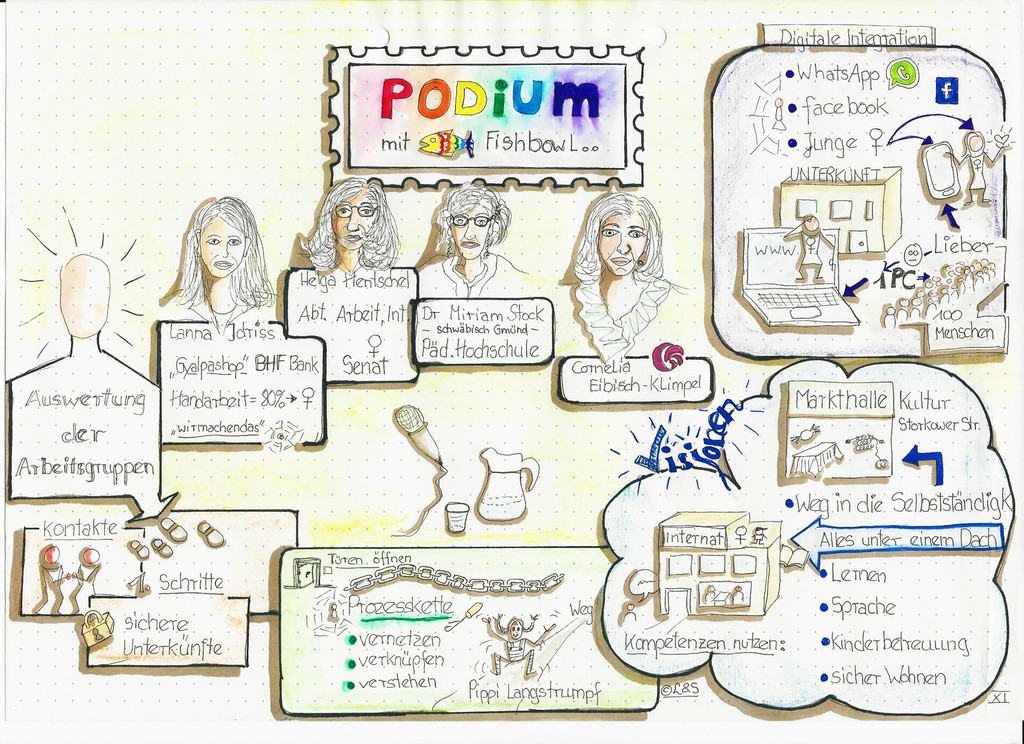 PODIUM
mit Fishbowl..
Digitale Integration
WhatsApp
facebook
f
Junge ♀
UNTERKUNFT
www.
Lieber
1 PC
100
Menschen
Lanna Idriss
„Gyalpashop" BHF Bank
Handarbeit = 80% → ♀
„wirmachendas"
Helga Hentschel
Abt. Arbeit, Int
♀
Senat
Dr Miriam Stock
- schwäbisch Gmünd -
Päd. Hochschule
Cornelia
Eibisch-Klimpel
Auswertung
der
Arbeitsgruppen
Kontakte
1. Schritte
sichere
Unterkünfte
Türen öffnen
Prozesskette
vernetzen
verknüpfen
verstehen
Weg
Pippi Langstrumpf
Visionen
Markthalle
Kultur
Storkower Str.
Weg in die Selbstständigk
Internat ♀
Alles unter einem Dach
Lernen
Sprache
Kinderbetreuung
sicher Wohnen
Kompetenzen nutzen:
XI